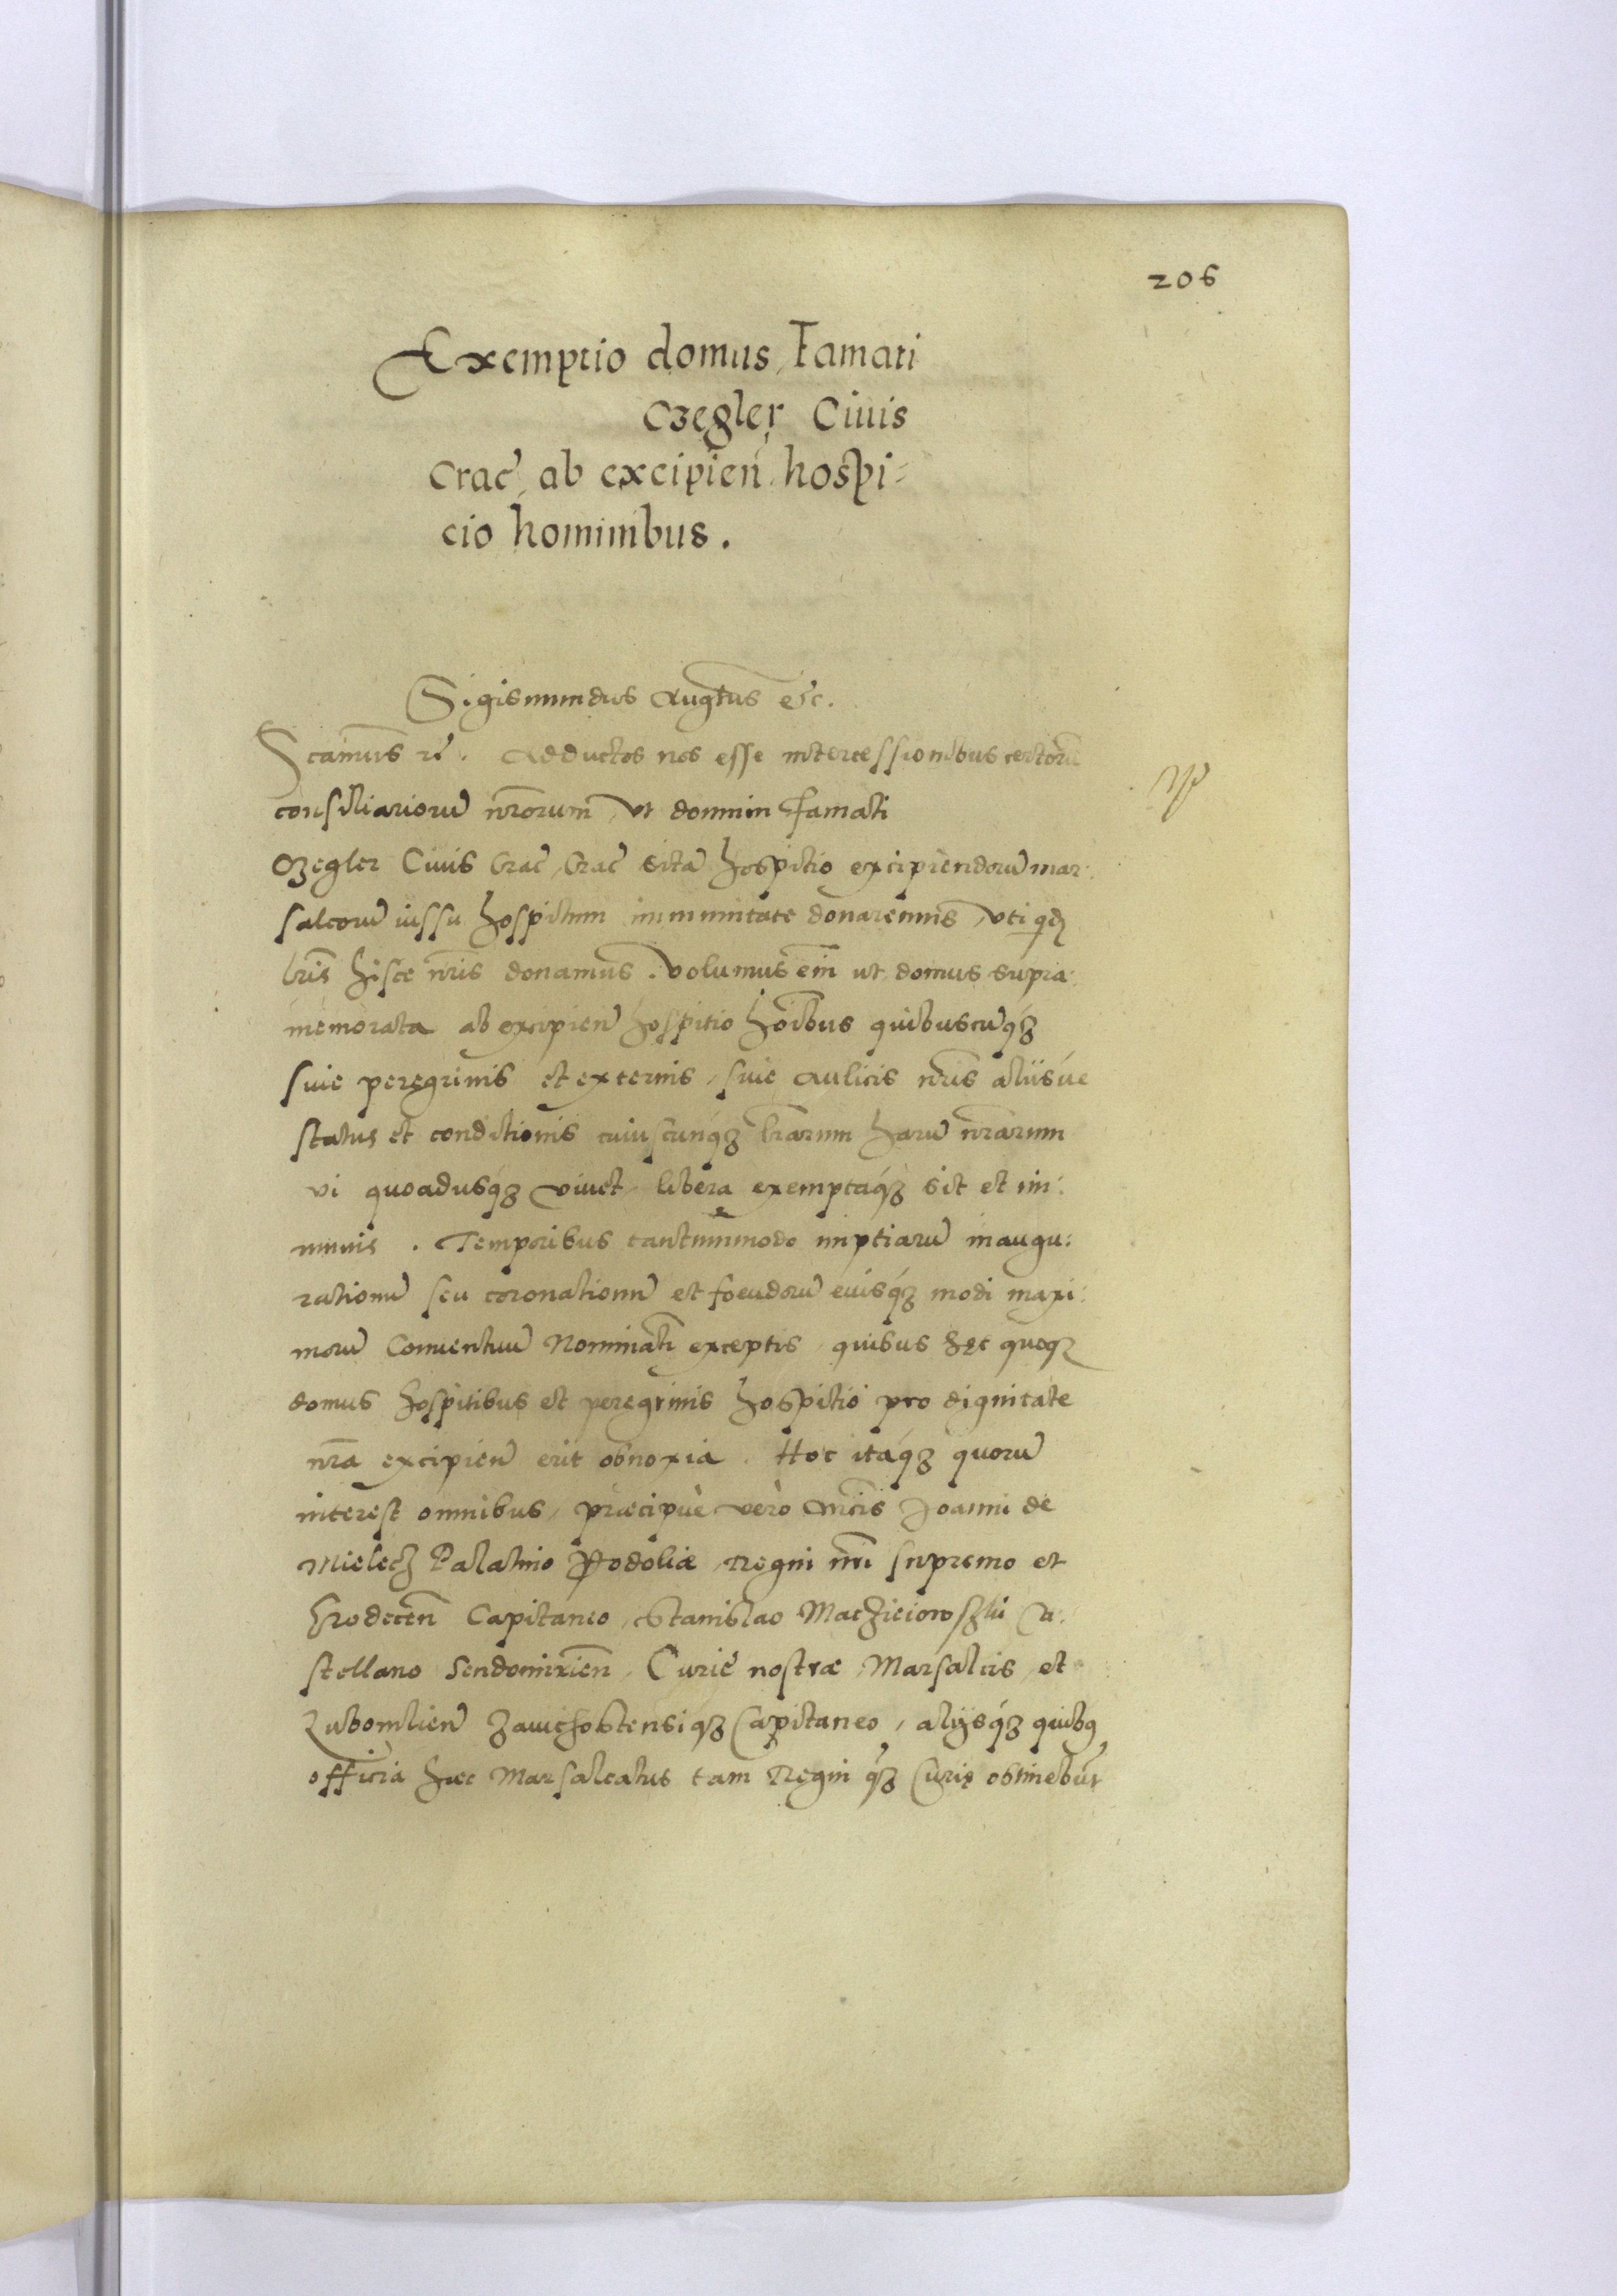 206
Exemptio domus, Famati
Czegler Ciuis
Crac̃, ab excipień hospi-
cio hominibus.
Sigismundus Augtus etc.
Scimus rc̃. Adductos nos esse intercessionibus certorũ
consiliariorũ nr̃orum, vt domum Famati
Czegler Ciuis Crac̃, Crac̃ sitã hospitio excipiendorũ mar:
salcorũ iussu hospitum immunitate donaremus, vti qdẽ
lr̃is hisce nr̃is donamus. Volumus em̃ ut domus supra:
memorata ab excipien̄ hospitio hõibus quibuscũq3
siue peregrinis et externis, siue aulicis nr̃is aliisúe
status et conditionis cuiuscunq3 lr̃arum harũ nr̃arum
vi quoadusq3 viuet, libera exemptaq3 sit et im:
munis. Temporibus tantummodo nuptiarũ inaugu:
rationũ seu coronationũ et foeudorũ eiusq3 modi maxi:
morũ Conuentuũ Nominati exceptis, quibus hęc quoq3
domus hospitibus et peregrinis hospitio pro dignitate
nr̃a excipien̄ erit obnoxia. Hoc itáq3 quorũ
interest omnibus, præcipuè verò Mcis Joanni de
Mielecz Palatino Podoliæ, Regni nr̃i supremo et
Grodecen̄ Capitaneo, Stanislao Maczieiowszki Ca:
stellano Sendomirien̄, Curiẽ nostræ Marsalcis, et
Lubomlien̄ Zawichostensiq3 Capitaneo, alijsq3 quibq
officia hæc Marsalcatus tam Regni q̃3 Curię obtinebũt